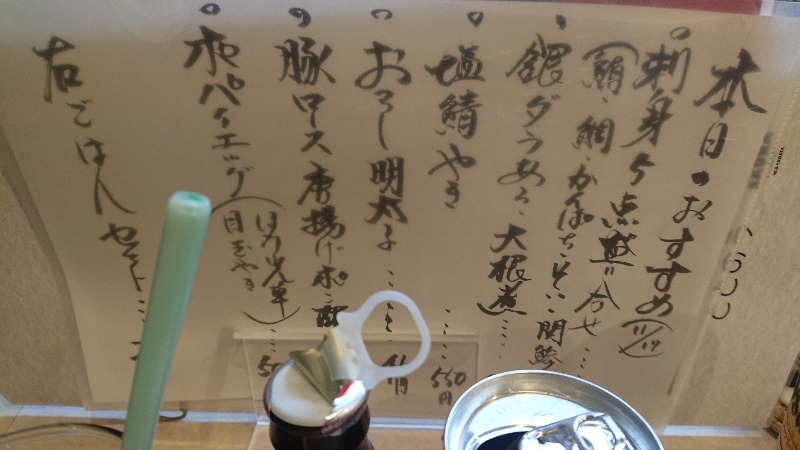 本日のおすすめ(11/17)
刺身5点盛り合せ…
(鮪、鯛、かんぱち、
銀ダラあら大根煮…
塩鯖やき……550円
おろし明太子……
豚ロース唐揚げポン酢
ポパイエッグ(ほうれん草 目玉やき)…
右ごはんセット…